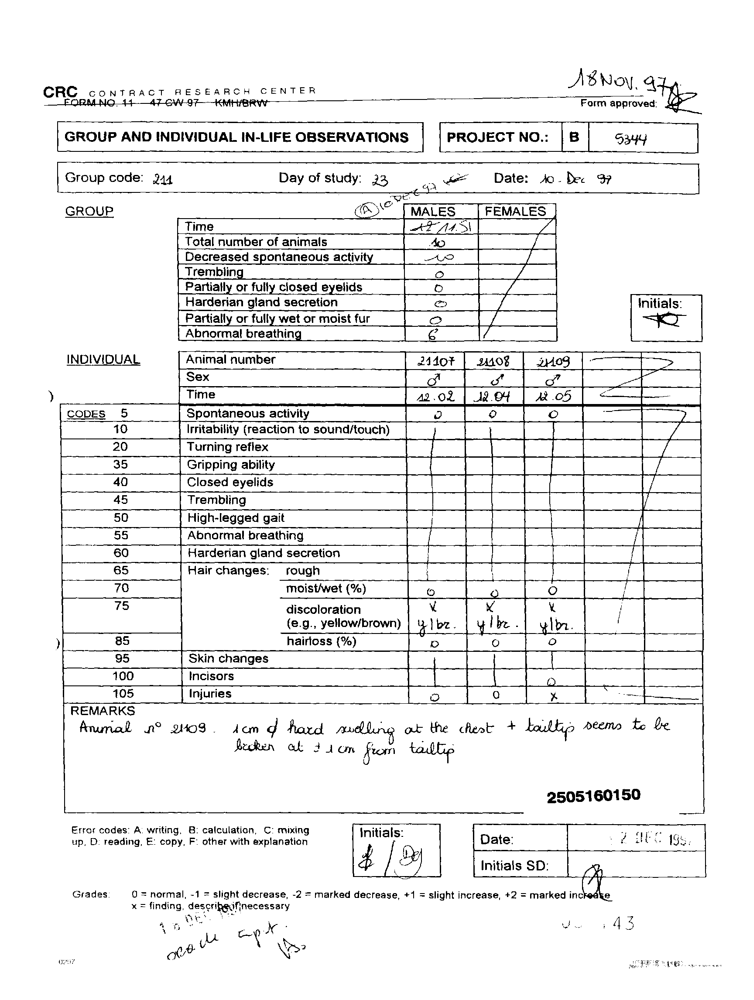 18 NOV. 97
CRC CONTRACT RESEARCH CENTER
FORM NO. 11 47 GW 97 KMH/BRW
Form approved:
GROUP AND INDIVIDUAL IN-LIFE OBSERVATIONS PROJECT NO.: B 5344
Group code: 211 Day of study: 23 Date: 10. Dec 97
(A) 10 Dec 97
GROUP MALES FEMALES
Time 11.51
Total number of animals 10
Decreased spontaneous activity
Trembling 0
Partially or fully closed eyelids 0
Harderian gland secretion 0
Initials:
Partially or fully wet or moist fur 0
Abnormal breathing
INDIVIDUAL Animal number 21107 21108 21109
Sex ♂ ♂ ♂
Time 12.02 12.04 12.05
CODES 5 Spontaneous activity 0 0 0
10 Irritability (reaction to sound/touch)
20 Turning reflex
35 Gripping ability
40 Closed eyelids
45 Trembling
50 High-legged gait
55 Abnormal breathing
60 Harderian gland secretion
65 Hair changes: rough
70 moist/wet (%) 0 0 0
75 discoloration x x x
(e.g., yellow/brown) y/br. y/br. y/br.
85 hairloss (%) 0 0 0
95 Skin changes
100 Incisors 0
105 Injuries 0 0 x
REMARKS
Animal n° 21109. 1cm hard swelling at the chest + tailtip seems to be
broken at ± 1 cm from tailtip
2505160150
Error codes: A: writing, B: calculation, C: mixing
up, D: reading, E: copy, F: other with explanation
Initials:
Date: 2 DEC 199
Initials SD:
Grades: 0 = normal, -1 = slight decrease, -2 = marked decrease, +1 = slight increase, +2 = marked increase
x = finding, describe if necessary
10 DEC
43
0297